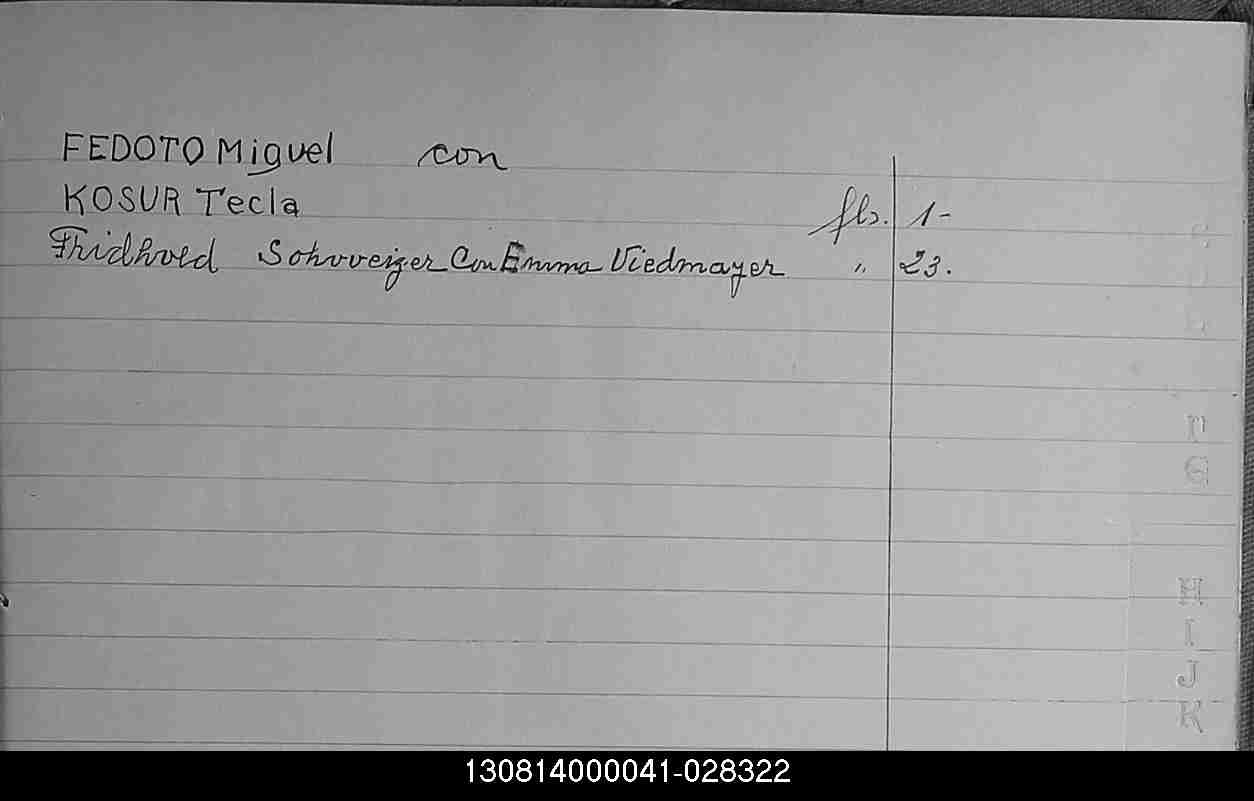 FEDOTO Miguel con
KOSUR Tecla fls. 1-
Fridhold Sohvveiger Con Emma Viedmayer " 23.
G
H
I
J
K
130814000041-028322